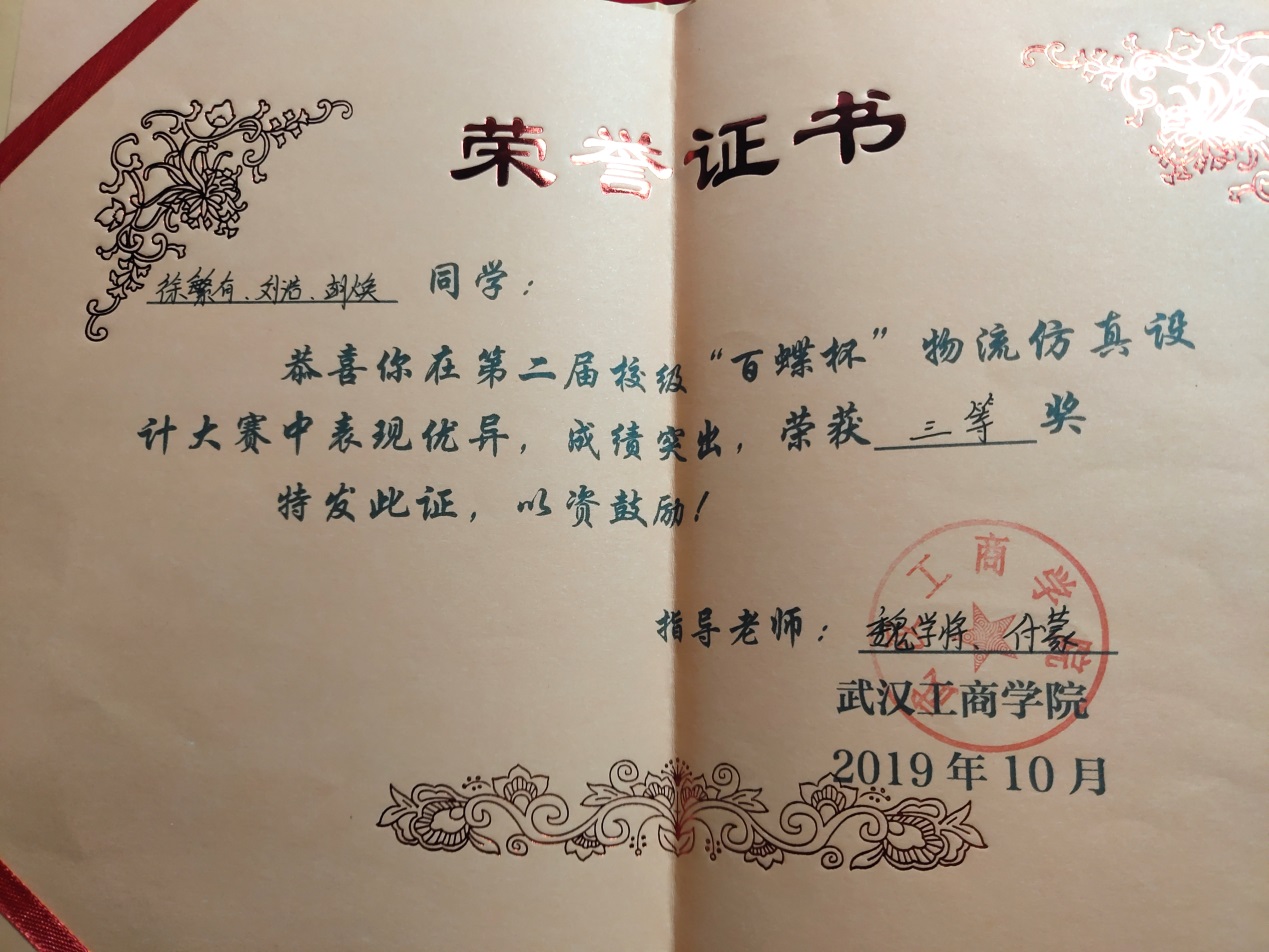 荣誉证书
徐繁有、刘浩、胡焕 同学：
恭喜你在第二届校级“百蝶杯”物流仿真设
计大赛中表现优异，成绩突出，荣获 三等 奖
特发此证，以资鼓励！
指导老师：魏学将、付蒙
武汉工商学院
武汉工商学院
2019年10月